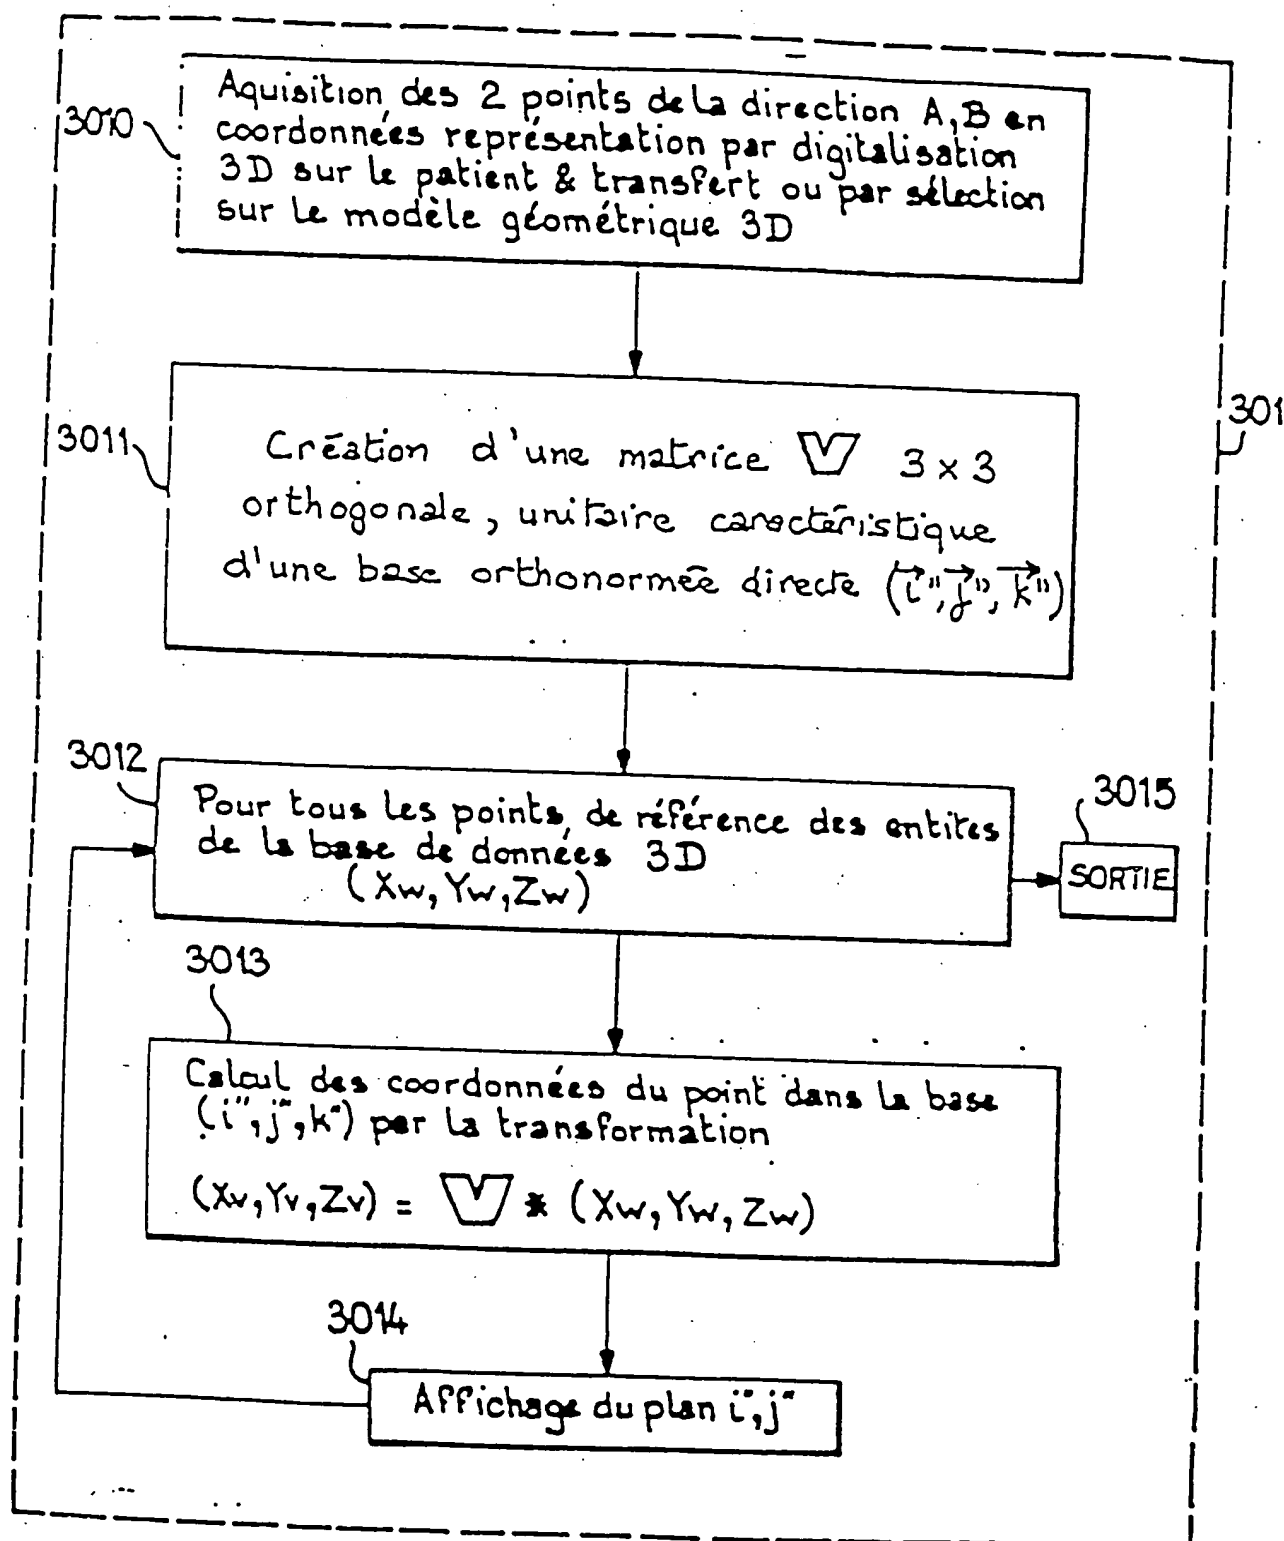 3010
Aquisition des 2 points de la direction A,B en
coordonnées représentation par digitalisation
3D sur le patient & transfert ou par sélection
sur le modèle géométrique 3D
301
3011
Création d'une matrice V 3 x 3
orthogonale, unitaire caractéristique
d'une base orthonormée directe (i", j", k")
3012
Pour tous les points, de référence des entites
de la base de données 3D
(Xw, Yw, Zw)
3015
SORTIE
3013
Calcul des coordonnées du point dans la base
(i", j", k") par la transformation
(Xv, Yv, Zv) = V * (Xw, Yw, Zw)
3014
Affichage du plan i", j"